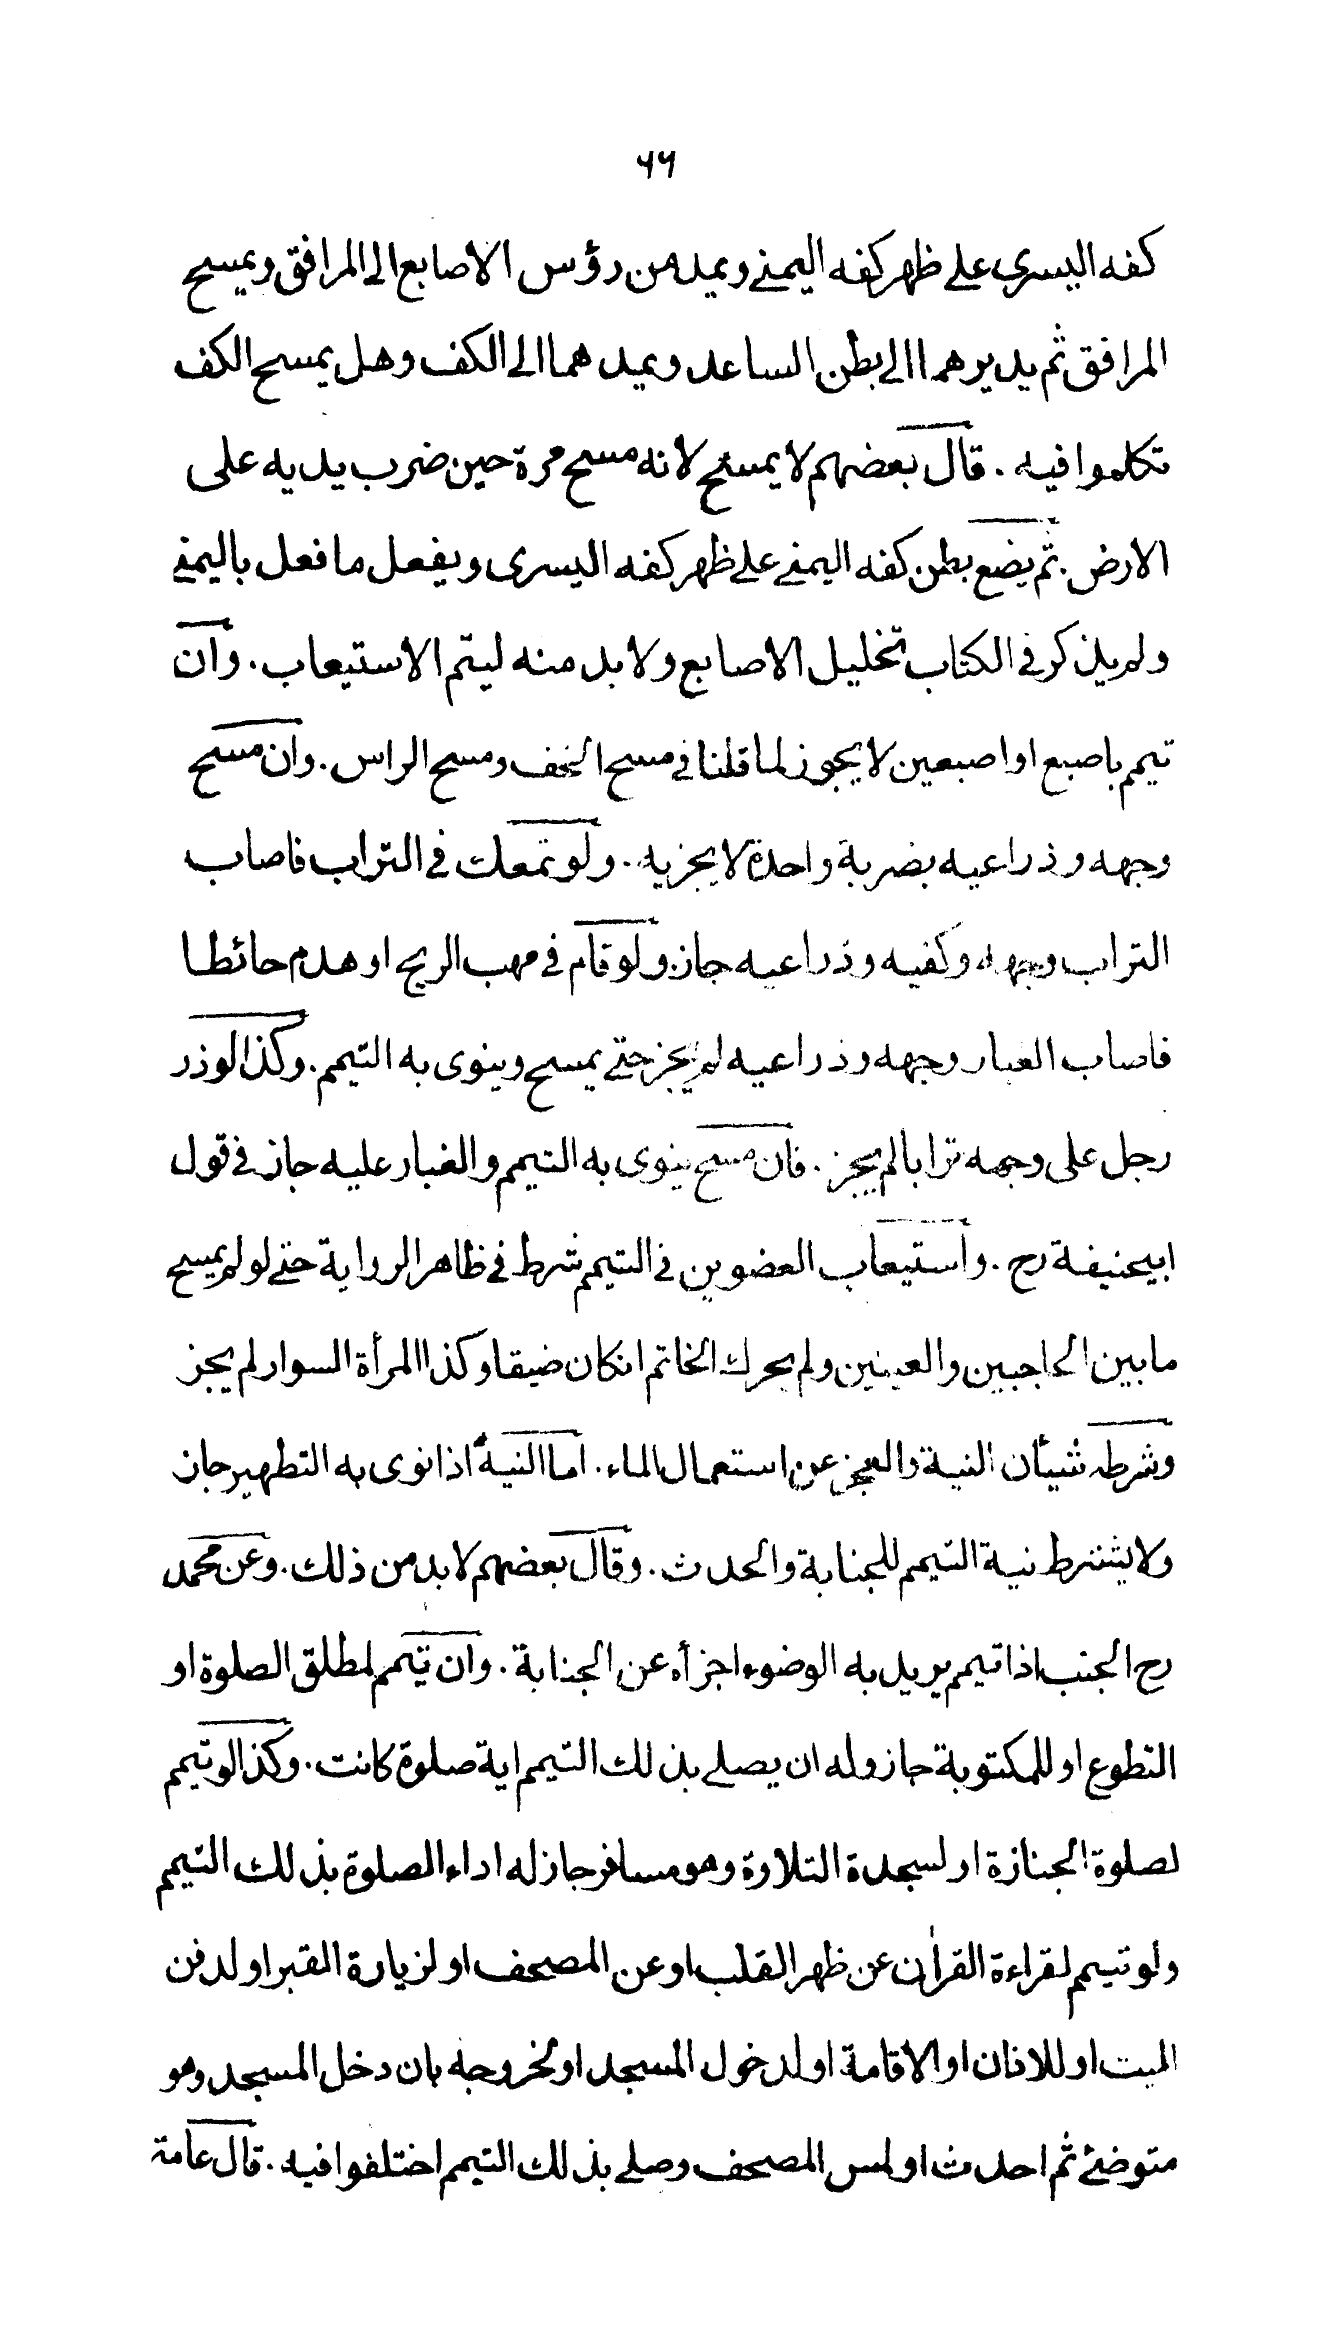 ٦٦
كفه اليسرى على ظهر كفه اليمنى ويمد من رؤس الاصابع الى المرافق ويمسح
المرافق ثم يديرهما الى بطن الساعد ويمدهما الى الكف وهل يمسح الكف
تكلموا فيه . قال بعضهم لا يمسح لانه مسح مرة حين ضرب يديه على
الارض . ثم يضع بطن كفه اليمنى على ظهر كفه اليسرى ويفعل ما فعل باليمنى
ولم يذكر فى الكتاب تخليل الاصابع ولا بد منه ليتم الاستيعاب . وان
تيمم باصبع او اصبعين لا يجوز لما قلنا فى مسح الخف ومسح الراس . وان مسح
وجهه وذراعيه بضربة واحدة لا يجزيه . ولو تمعك فى التراب فاصاب
التراب وجهه وكفيه وذراعيه جاز ولو قام فى مهب الريح او هدم حائطا
فاصاب الغبار وجهه وذراعيه لم يجز حتى يمسح وينوى به التيمم . وكذا لو ذر
رجل على وجهه ترابا لم يجز . فان مسح ينوى به التيمم والغبار عليه جاز فى قول
ابيحنيفة رح . واستيعاب العضوين فى التيمم شرط فى ظاهر الرواية حتى لو لم يمسح
ما بين الحاجبين والعينين ولم يحرك الخاتم انكان ضيقا وكذا المرأة السوار لم يجز
وشرطه شيأن النية والعجز عن استعمال الماء . اما النية اذا نوى به التطهير جاز
ولا يشترط نية التيمم للجنابة والحدث . وقال بعضهم لا بد من ذلك . وعن محمد
رح الجنب اذا تيمم يريد به الوضوء اجزأه عن الجنابة . وان تيمم لمطلق الصلوة او
التطوع او للمكتوبة جاز وله ان يصلى بذلك التيمم اية صلوة كانت . وكذا لو تيمم
لصلوة الجنازة او لسجدة التلاوة وهو مسافر جاز له اداء الصلوة بذلك التيمم
ولو تيمم لقراءة القراٰن عن ظهر القلب او عن المصحف او لزيارة القبر او لدفن
الميت او للاذان او الاقامة او لدخول المسجد او لخروجه بان دخل المسجد وهو
متوضئ ثم احدث او لمس المصحف وصلى بذلك التيمم اختلفوا فيه . قال عامة